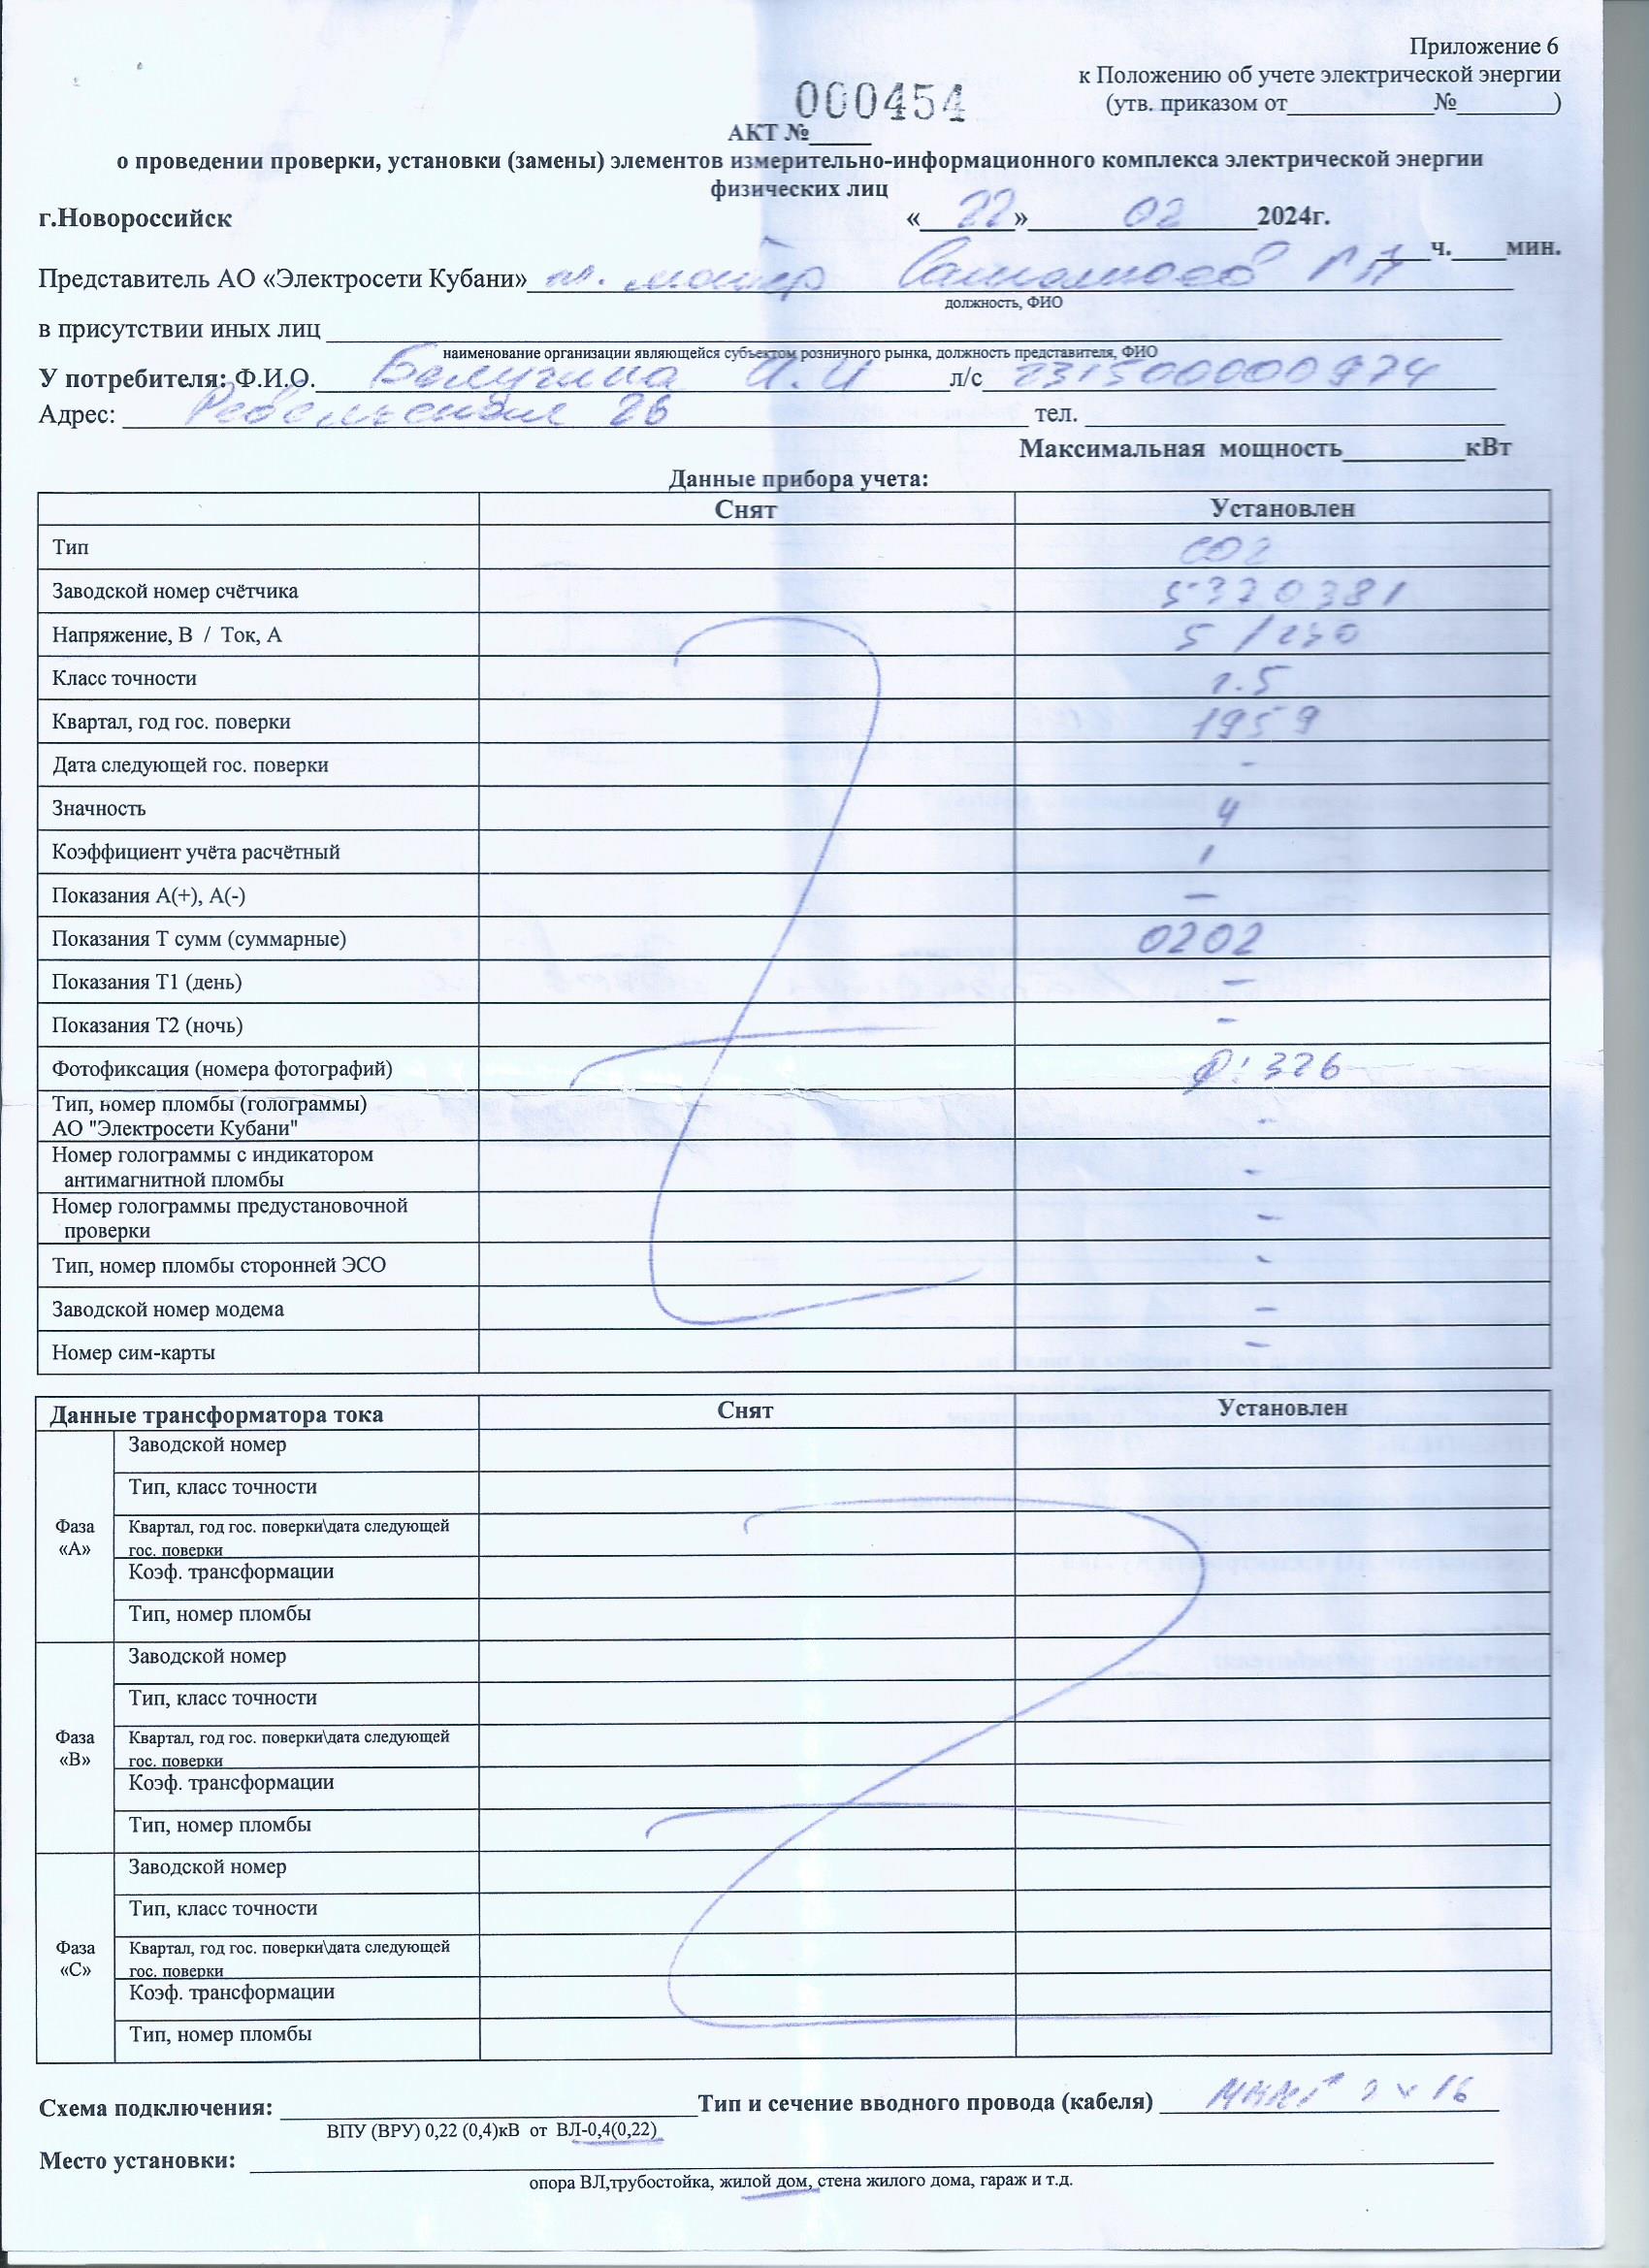 Приложение 6
к Положению об учете электрической энергии
(утв. приказом от____________№________)
000454
АКТ №_____
о проведении проверки, установки (замены) элементов измерительно-информационного комплекса электрической энергии
физических лиц
г.Новороссийск «22» 02 2024г.
___ч.____мин.
Представитель АО «Электросети Кубани» мастер
должность, ФИО
в присутствии иных лиц
наименование организации являющейся субъектом розничного рынка, должность представителя, ФИО
У потребителя: Ф.И.О. Белугина А.И л/с 231500000974
Адрес: Ревельская 26 тел.
Максимальная мощность_________кВт
Данные прибора учета:
Снят Установлен
Тип СО2
Заводской номер счётчика 5320381
Напряжение, В / Ток, А 5 / 250
Класс точности 2.5
Квартал, год гос. поверки 1959
Дата следующей гос. поверки -
Значность 4
Коэффициент учёта расчётный 1
Показания А(+), А(-) —
Показания Т сумм (суммарные) 0202
Показания Т1 (день) –
Показания Т2 (ночь) –
Фотофиксация (номера фотографий) Ф: 326
Тип, номер пломбы (голограммы)
АО "Электросети Кубани" -
Номер голограммы с индикатором
антимагнитной пломбы -
Номер голограммы предустановочной
проверки –
Тип, номер пломбы сторонней ЭСО -
Заводской номер модема –
Номер сим-карты –
Данные трансформатора тока Снят Установлен
Фаза «А»
Заводской номер
Тип, класс точности
Квартал, год гос. поверки\дата следующей
гос. поверки
Коэф. трансформации
Тип, номер пломбы
Фаза «В»
Заводской номер
Тип, класс точности
Квартал, год гос. поверки\дата следующей
гос. поверки
Коэф. трансформации
Тип, номер пломбы
Фаза «С»
Заводской номер
Тип, класс точности
Квартал, год гос. поверки\дата следующей
гос. поверки
Коэф. трансформации
Тип, номер пломбы
Схема подключения: Тип и сечение вводного провода (кабеля) 2 х 16
ВПУ (ВРУ) 0,22 (0,4)кВ от ВЛ-0,4(0,22)
Место установки:
опора ВЛ,трубостойка, жилой дом, стена жилого дома, гараж и т.д.